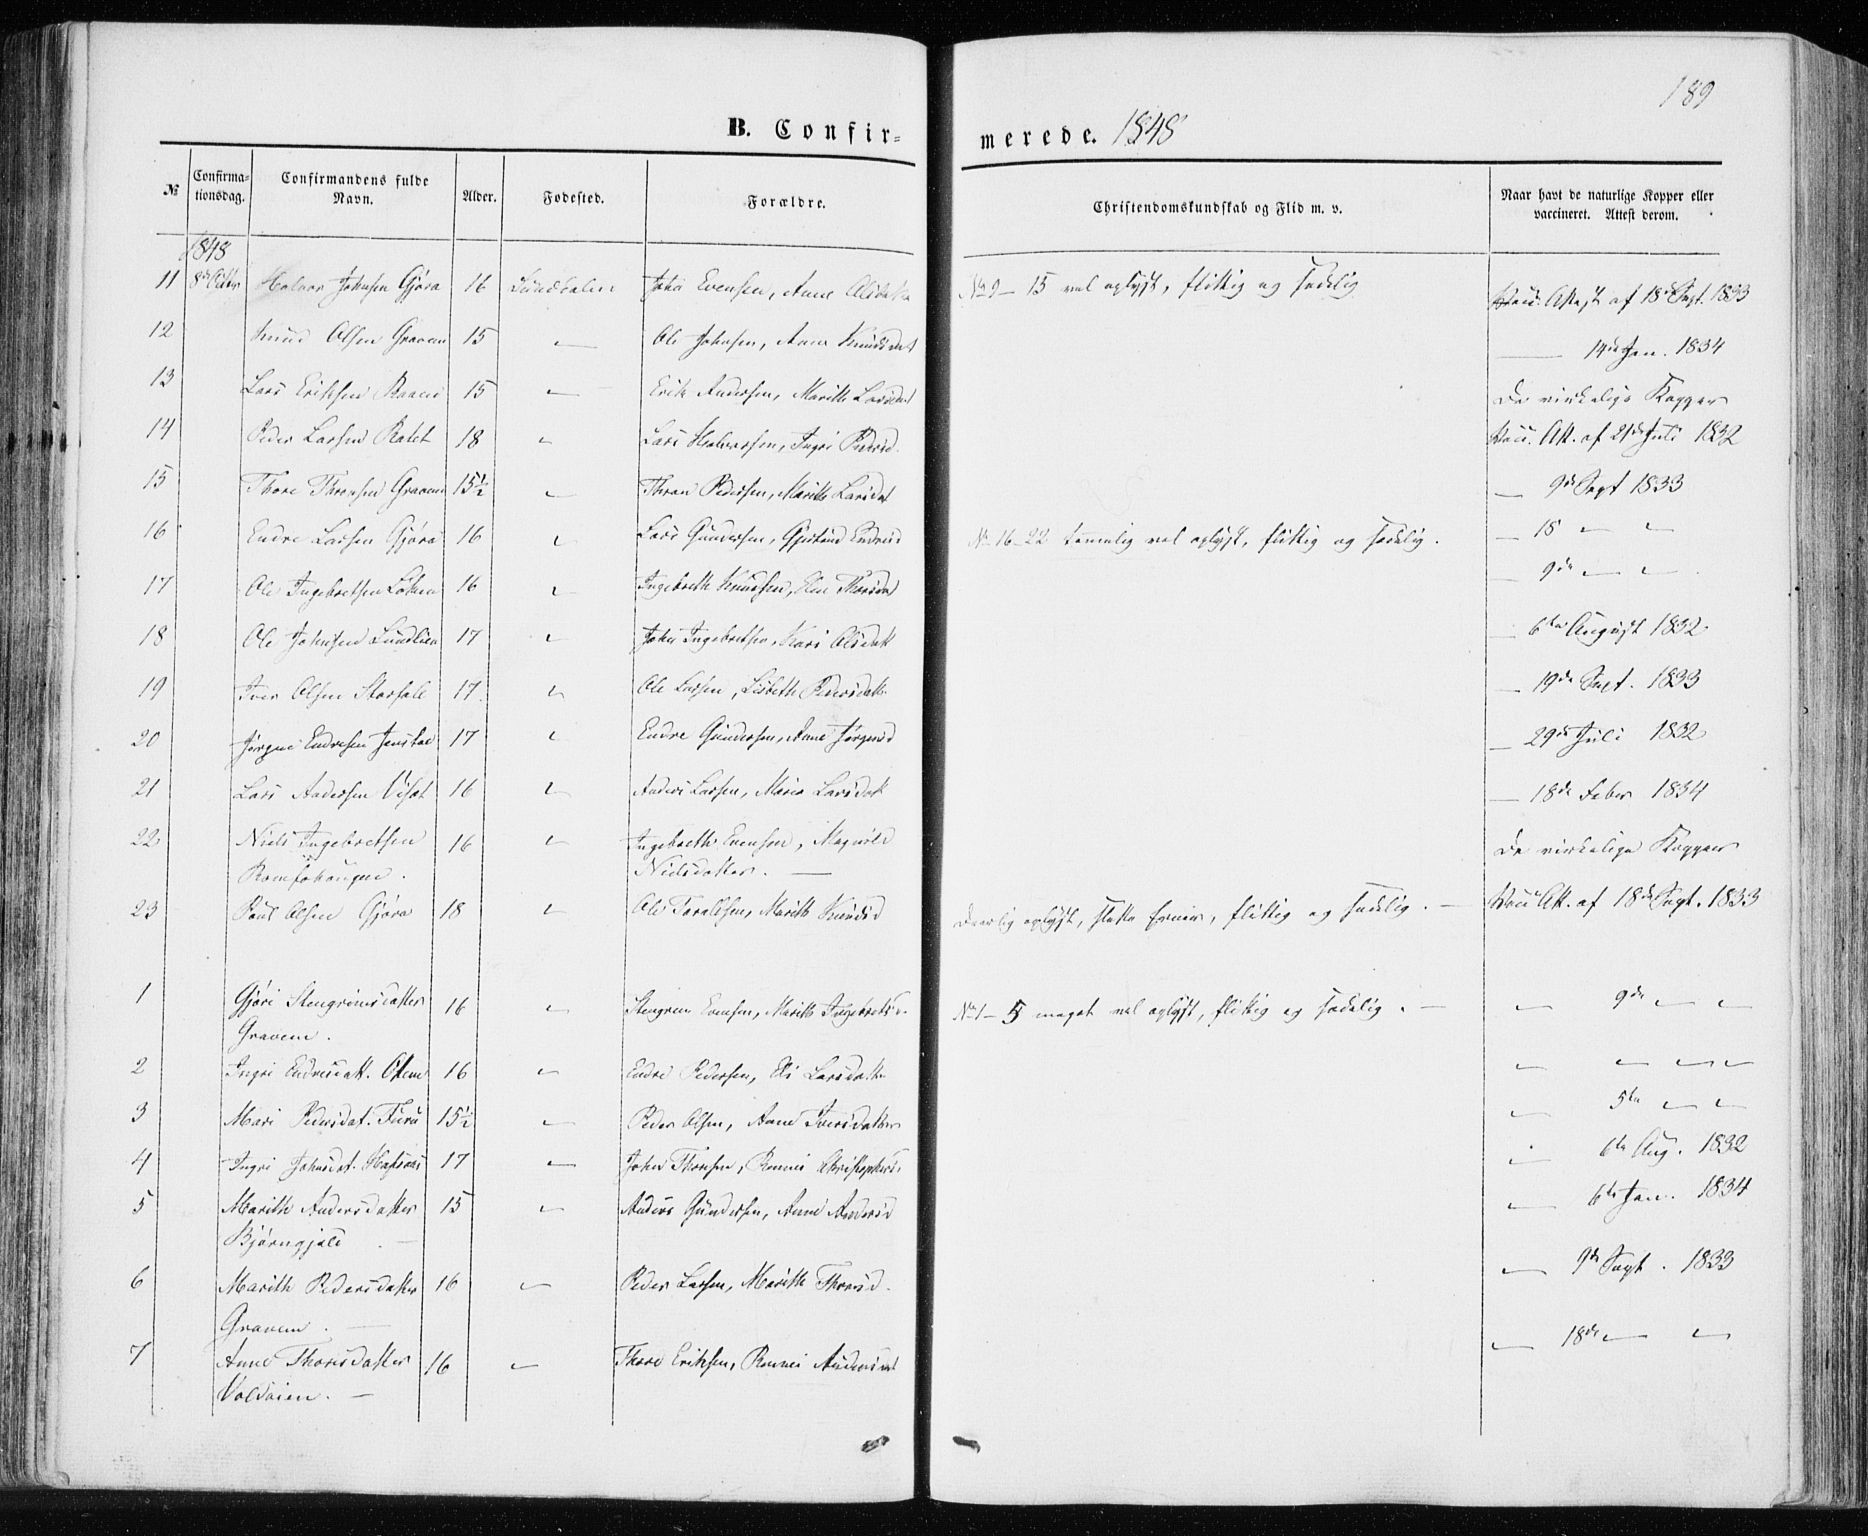 189
B. Confir= merede. 1848
№ Confirma=tionsdag. Confirmandens fulde Navn. Alder. Fødested. Forældre. Christendomskundskab og Flid m. v. Naar havt de naturlige Kopper eller vaccineret. Attest derom.
1848
11 8de Octbr Halvor Johnsen Gjøra 16 Sundalen John Evensen, Anne Olsdatt No 9 – 15 vel oplyst, flittig og sædelig Vacc. Attest af 18de Sept. 1833
12 Knud Olsen Gravem 15 – Ole Johnsen, Anne Knudsdat — 14de Jan. 1834
13 Lars Eriksen 15 – Erik Andersen, Marith Larsdat De virkelige Kopper
14 Peder Larsen 18 – Lars Halvorsen, Ingri Pedersd. Vacc. Att. af 21de Juli 1832
15 Thore Thronsen Gravem 15½ – Thron Pedersen, Marith Larsdat — 9de Sept 1833
16 Endre Larsen Gjøra 16 – Lars Gundersen, Gjertrud Endresd No 16–22 temmelig vel oplyst, flittig og sædelig. — 18 – –
17 Ole Ingebretsen Løken 16 – Ingebreth Knudsen, Elen Thoresdat — 9de – –
18 Ole Johnsen Sundlien 17 – John Ingebretsen, Kari Olsdatt — 6te August 1832
19 Iver Olsen Storfale 17 – Ole Larsen, Lisbeth Pedersdatt — 19de Sept. 1833
20 Jørgen Endresen Jenstad 17 – Endre Gundersen, Anne Jørgensd — 29de Juli 1832
21 Lars Andersen 16 – Anders Larsen, Marit Larsdatt — 18de Feber 1834
22 Niels Ingebretsen 16 – Ingebreth Evensen, Magnild De virkelige Kopper
Romfohaugen. Nielsdatter. —
23 Paul Olsen Gjøra 18 – Ole Toralfsen, Marith Knudsd daarlig oplyst, slette Evner, flittig og sædelig. — Vacc Att. af 18de Sept. 1833
1 Gjøri Stengrimsdatter 16 – Stengrim Evensen, Marith Ingebretsd. No 1–5 meget vel oplyst, flittig og sædelig. — – 9de – –
Gravem.
2 Ingri Endresdatt. 16 – Endre Pedersen, Eli Larsdatter – – – –
3 Mari Pedersdat. Furu 15½ – Peder Olsen, Anne Iversdatter – 5te – –
4 Ingri Johnsdat. 17 – John Thoresen, Rønnei Christophersd. – 6te Aug. 1832
5 Marith Andersdatter 15 – Anders Gundersen, Anne Andersd – 6te Jan. 1834
Bjørngjeld. —
6 Marith Pedersdatter 16 – Peder Larsen, Marith Thoresd. – 9de Sept. 1833
Gravem. —
7 Anne Thoresdatter 16 – Thore Eriksen, Rønnei Andersdat – 18de – –
Voldøien. —